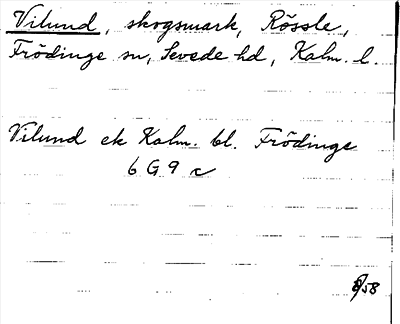 Vilund, skogsmark, Rössle,
Frödinge sn, Sevede hd, Kalm. l.
Vilund ek Kalm. bl. Frödinge
6 G 9 c
8/58